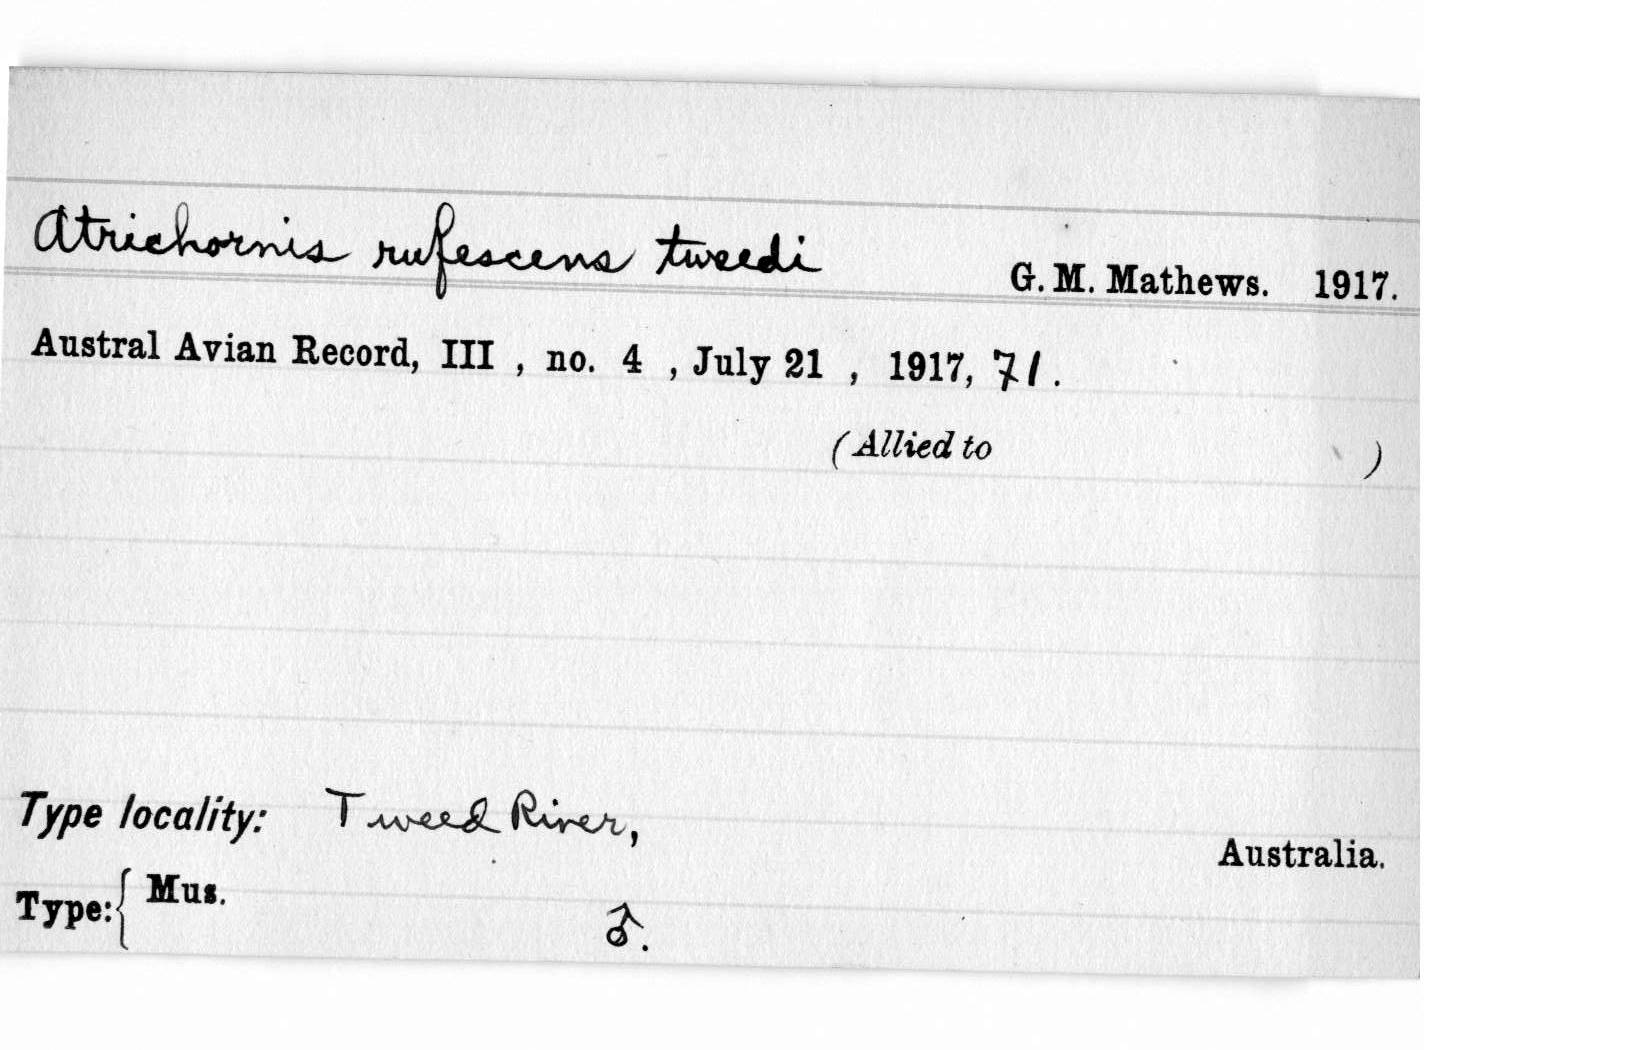 Atrichornis rufescens tweedi G. M. Mathews. 1917.
Austral Avian Record, III , no. 4 , July 21 , 1917, 71.
(Allied to )
Type locality: Tweed River, Australia.
Type: { Mus. ♂.